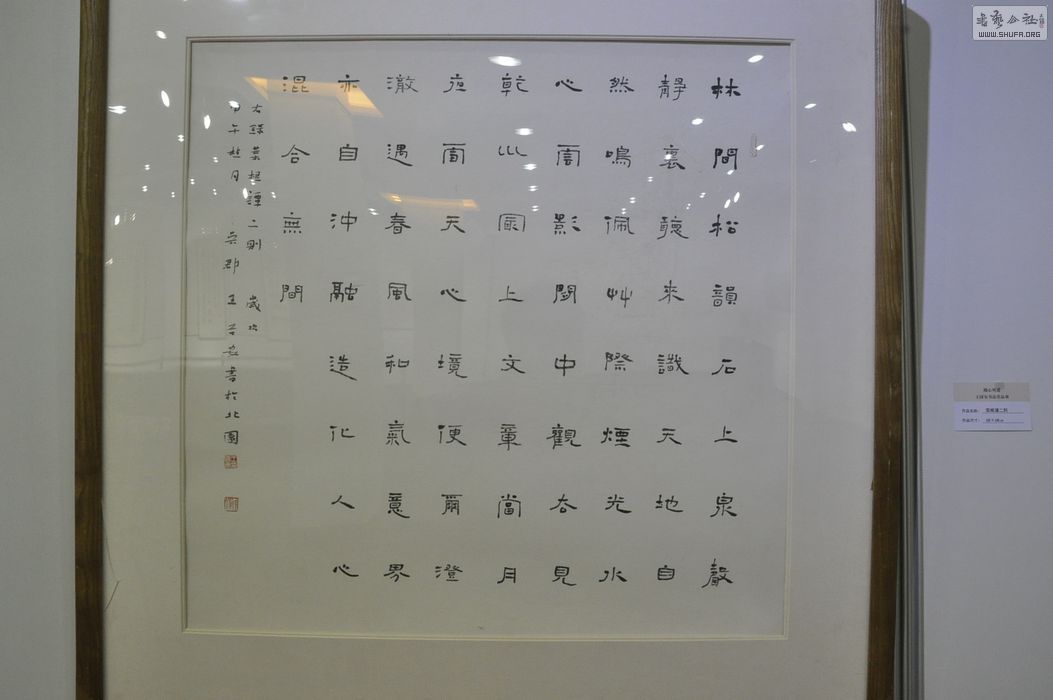 林間松韻石上泉聲
靜裏聽來識天地自
然鳴佩艸際煙光水
心雲影閒中觀去見
乾巛冣上文章當月
夜雪天心境便爾澄
澈遇春風和氣意界
亦自沖融造化人心
混合無間
右錄菜根譚二則 歲次
甲午桂月 吳郡 王書於北園
WWW.SHUFA.ORG